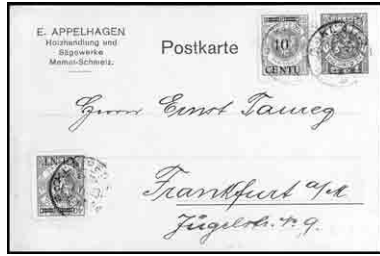 E. APPELHAGEN
Holzhandlung und
Sägewerke
Memel-Schmelz.
Postkarte
10
CENTU
Herrn Ernst
Frankfurt a/M
Jügelstr. 9.